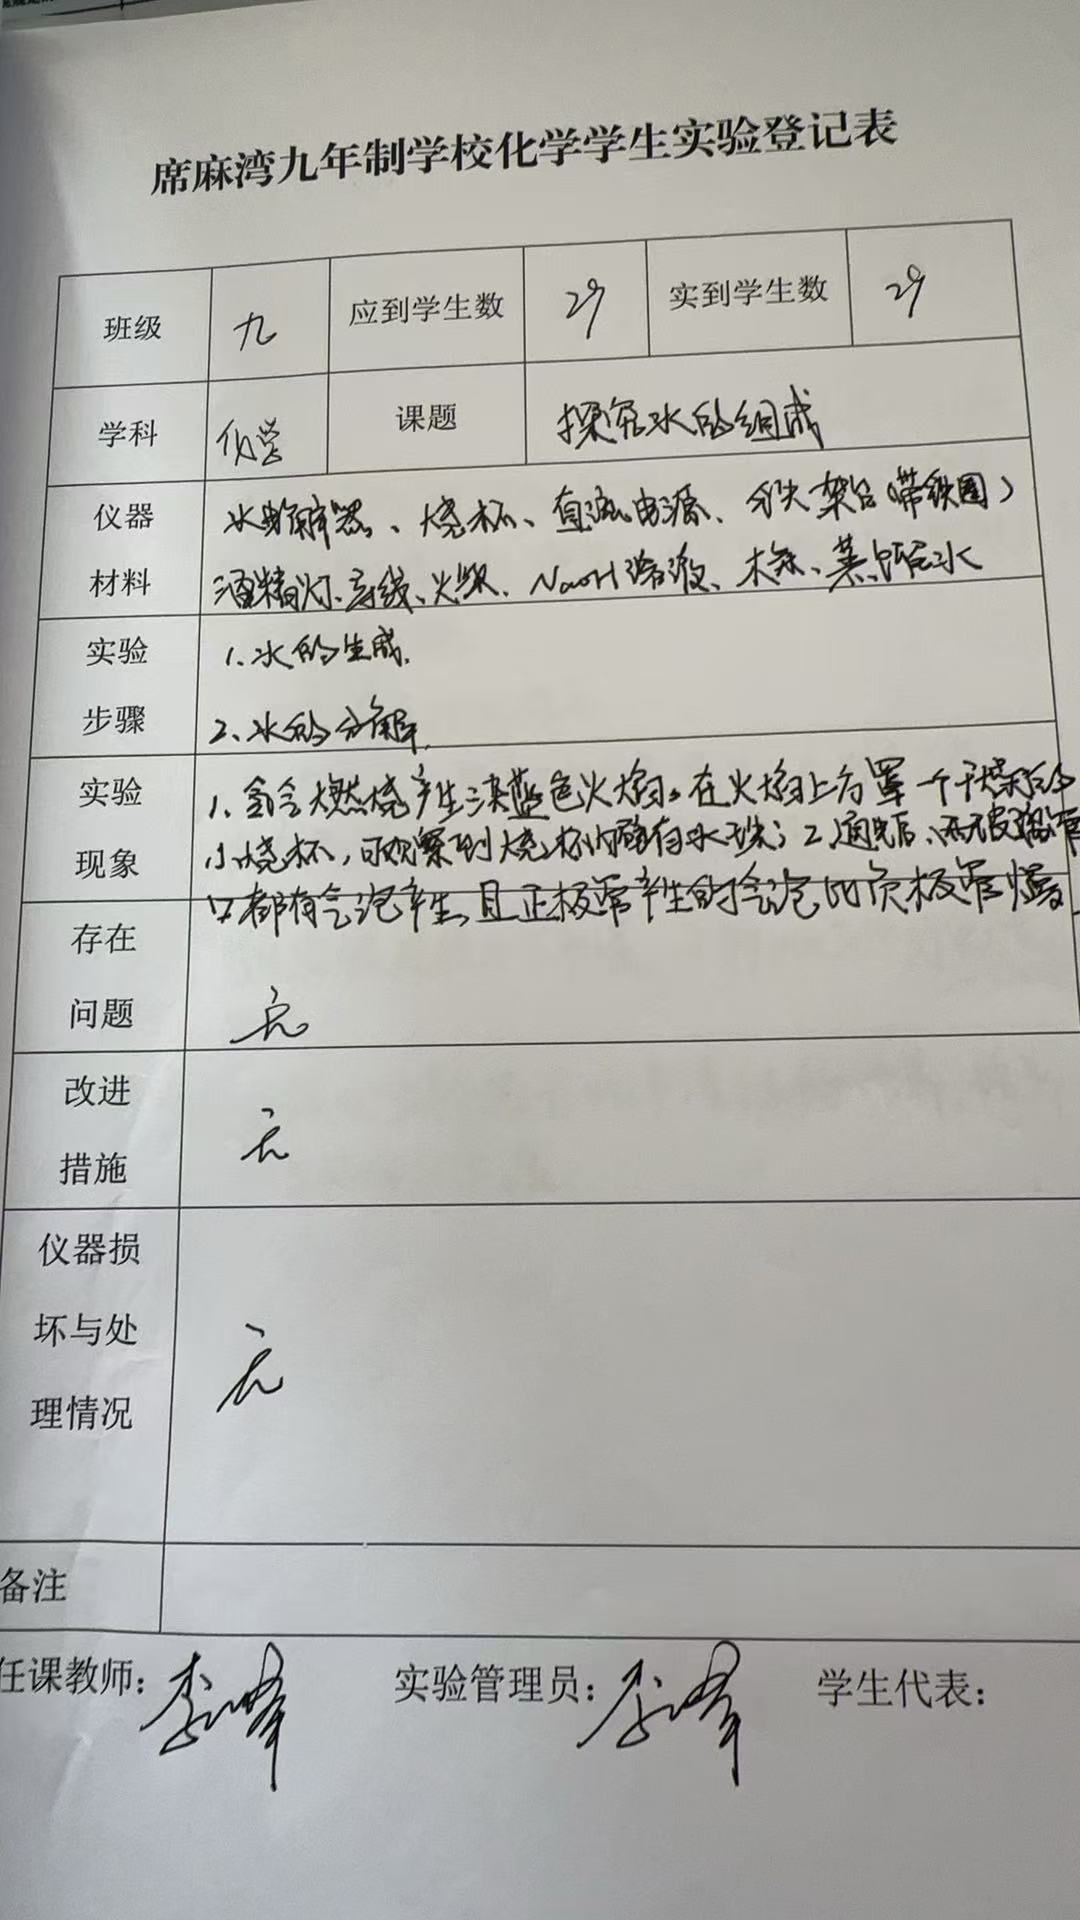 席麻湾九年制学校化学学生实验登记表
班级 九 应到学生数 29 实到学生数 29
学科 化学 课题 探究水的组成
仪器 水电解器、烧杯、直流电源、铁架台(带铁圈)
材料 酒精灯、导线、火柴、NaOH溶液、木条、蒸馏水
实验 1.水的生成.
步骤 2.水的分解.
实验 1.氢气燃烧产生淡蓝色火焰。在火焰上方罩一个干燥的
现象 小烧杯,可观察到烧杯内壁有水珠;2.通电后,两玻璃管
口都有气泡产生,且正极管产生的气泡比负极管慢
存在
问题 无
改进
措施 无
仪器损
坏与处
理情况 无
备注
任课教师: 李峰 实验管理员: 李峰 学生代表: